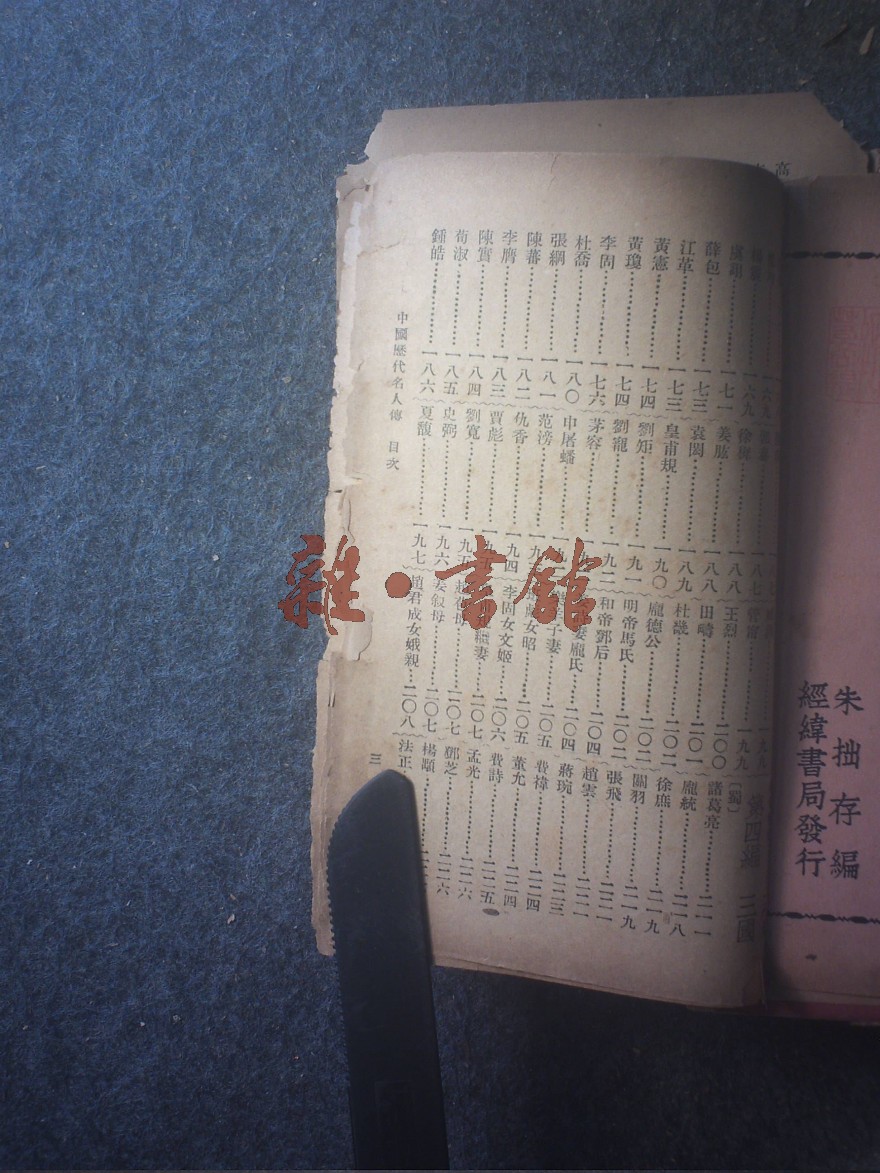 朱拙存編
經緯書局發行
虞詡……一七一
薛包……一七三
江革……一七三
黃憲……一七四
黃瓊……一七四
李固……一七六
杜喬……一八〇
張綱……一八一
陳蕃……一八二
李膺……一八三
陳寔……一八四
荀淑……一八五
鍾皓……一八六
徐穉……一八八
姜肱……一八八
袁閎……一八九
皇甫規……一九〇
劉矩……一九一
劉寵……一九二
茅容……一九
申屠蟠……一九
范滂……一九
仇香……一九四
賈彪……一九
劉寬……一九五
史弼……一九六
夏馥……一九七
一九九
王烈……二〇〇
田疇……二〇一
杜畿……二〇二
龐德公……二〇二
明帝馬氏……二〇二
和帝鄧后……二〇四
妻龐氏……二〇四
子妻……二〇五
女昭……二〇五
李固女文姬……二〇六
妻……二〇七
趙苞母……二〇七
姜叙母……二〇七
趙君成女娥親……二〇八
第四編 三國
〔蜀〕
諸葛亮……二一一
龐統……二一八
徐庶……二一九
關羽……二一九
張飛……二二一
趙雲……二二一
蔣琬……二二三
費禕……二二四
董允……二二四
費詩……二二五
孟光……二二六
鄧芝……二二六
楊顒
法正
中國歷代名人傳 目次
三
雜·書館